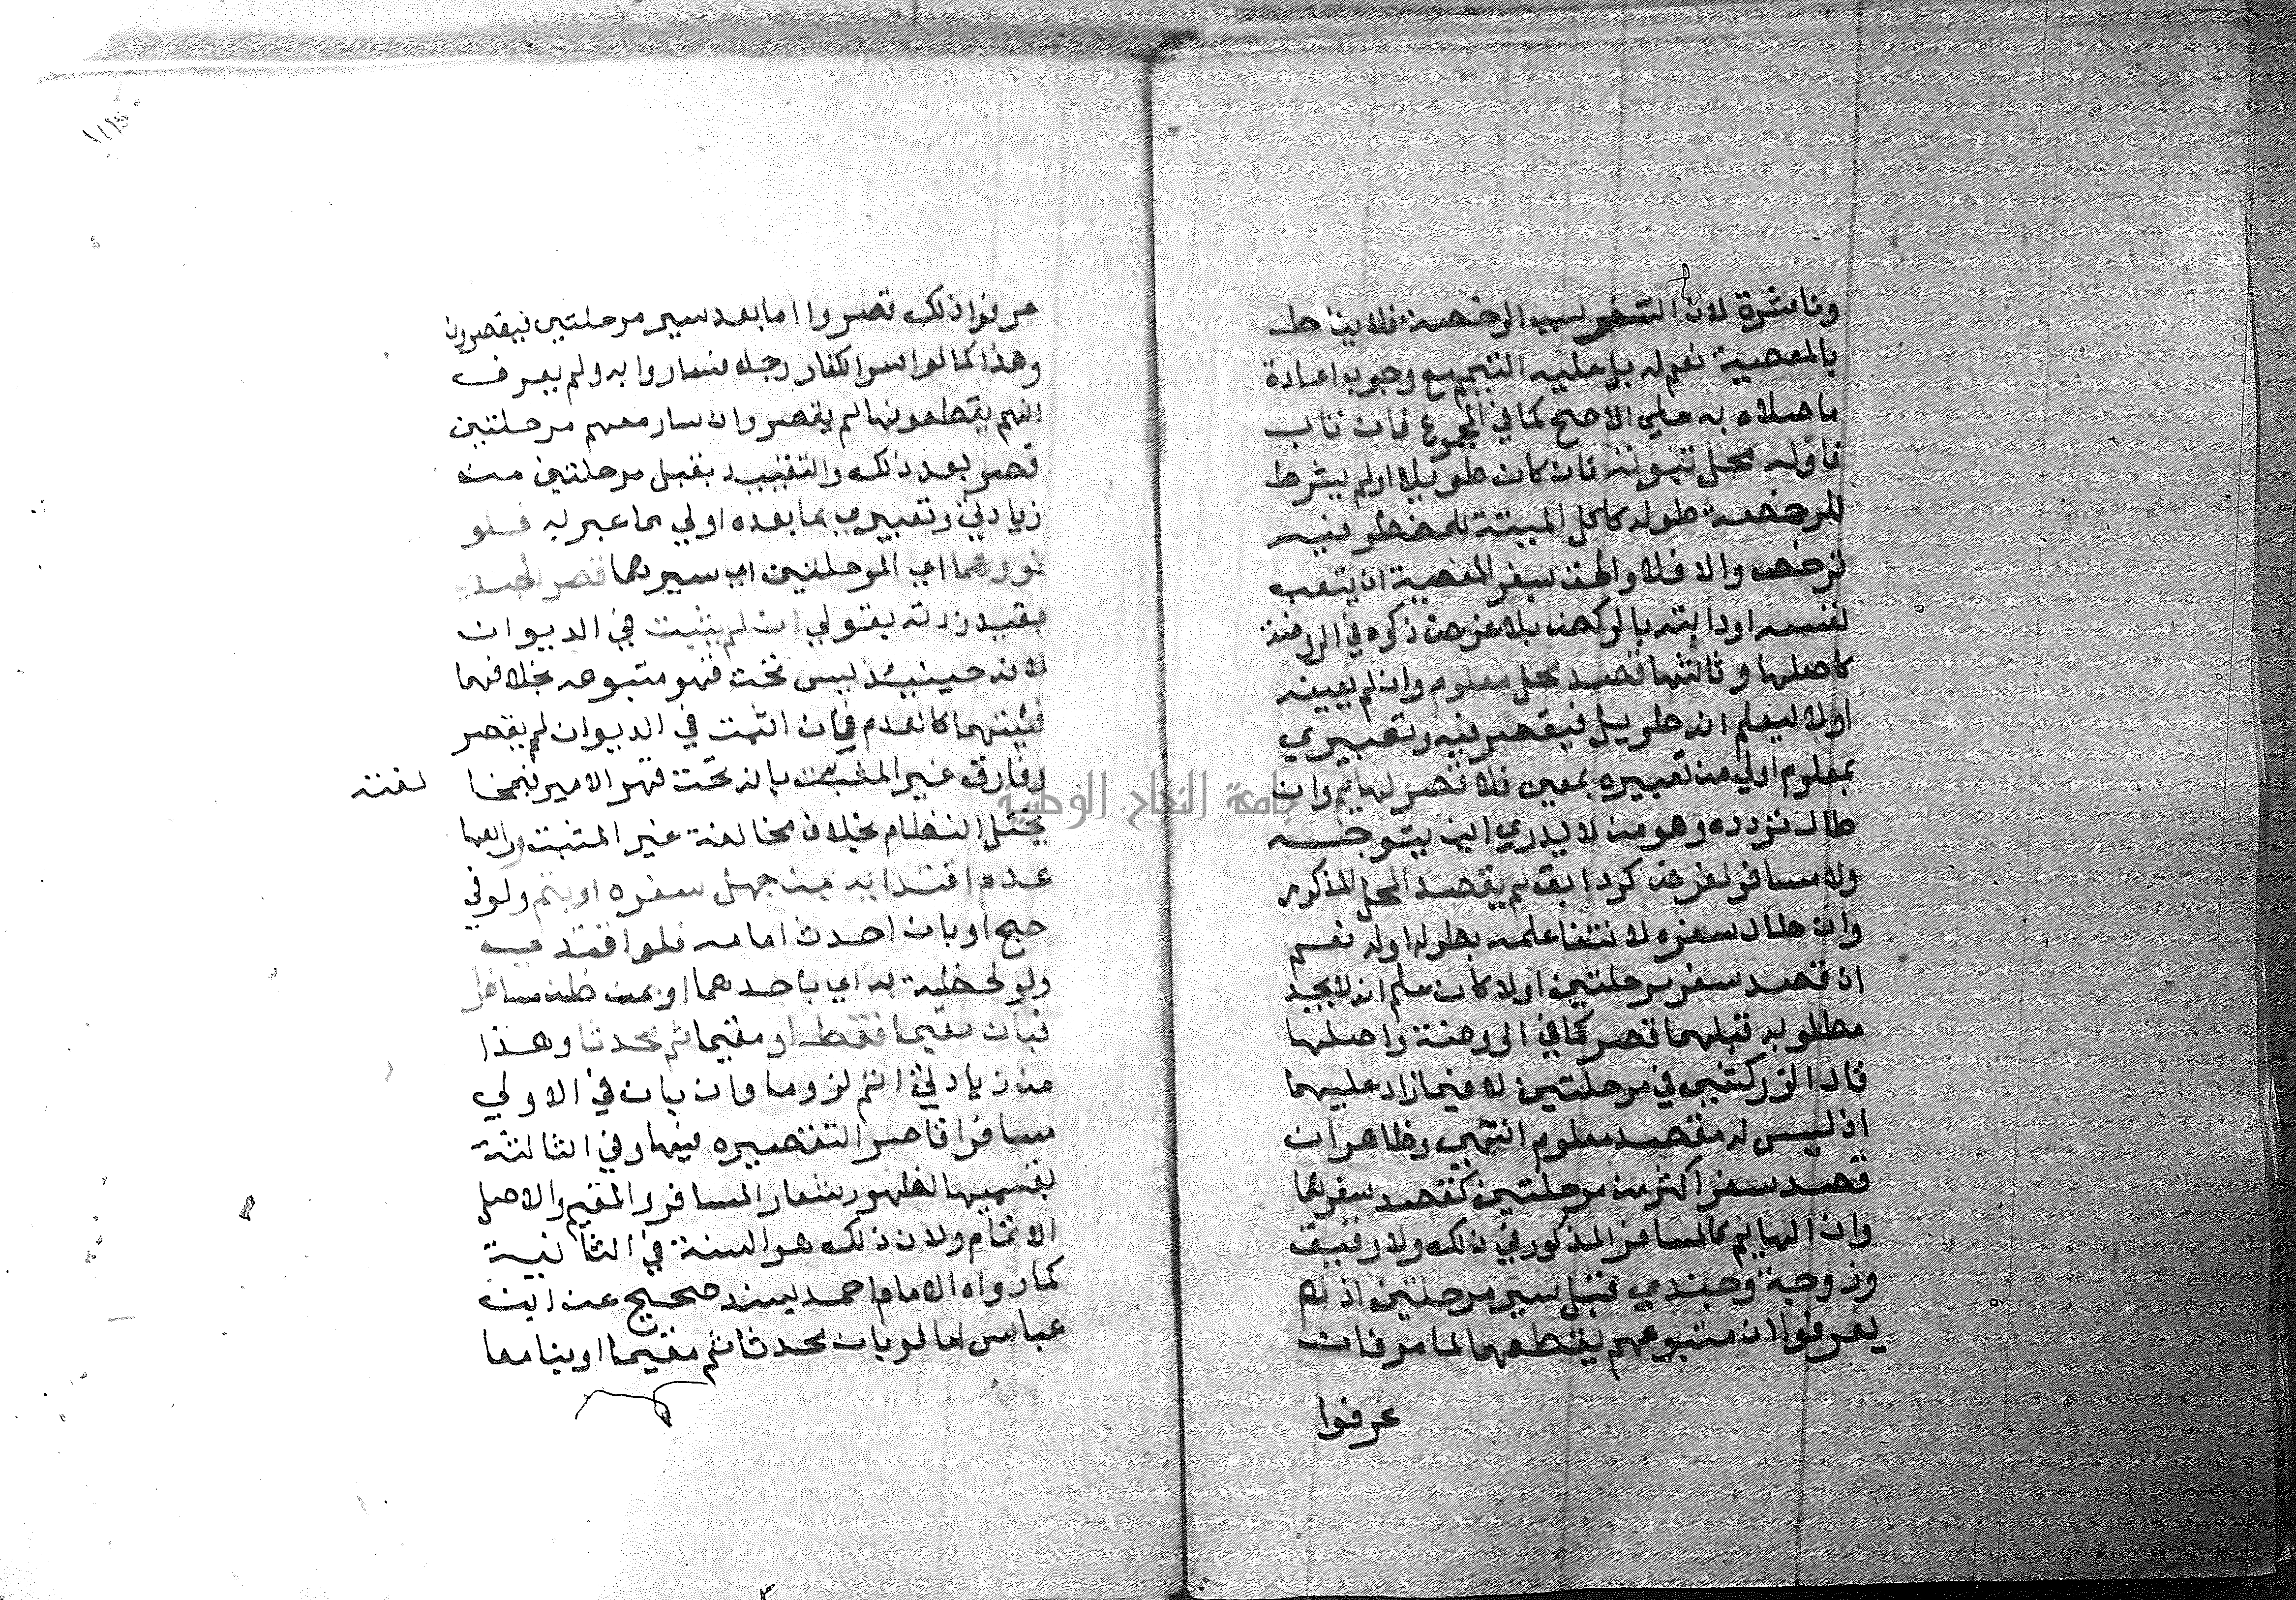 وناشزة لان السفر سبب الرخصة فلا يناط
بالمعصية نعم له بل عليه التيمم مع وجوب اعادة
ما صلاه به علي الاصح كما في المجموع فان تاب
فاوله محل توبته فان كان طويلا او لم يشرط
للرخصة طوله كاكل الميتة للمضطر فيه
ترخص والا فلا والحق بسفر المعصية ان يتعب
نفسه او دابته بالركض بلا غرض ذكره في الروضة
كاصلها وثالثها قصد محل معلوم وان لم يعينه
اولا ليعلم انه طويل فيقصر فيه وتعبيري
بمعلوم اولي من تعبيره بمعين فلا قصر لهايم وان
طال تردده وهو من لا يدري اين يتوجه
ولا مسافر لغرض كرد ابق لم يقصد المحل المذكور
وان طال سفره لانتفا علمه بطوله اوله نعم
ان قصد سفر مرحلتين اولا كان علم انه لا يجد
مطلوبه قبلهما قصر كما في الروضة واصلها
قال الزركشي في مرحلتين لا فيما زاد عليهما
اذ ليس له مقصد معلوم انتهي وظاهر ان
قصد سفر اكثر من مرحلتين كقصد سفرهما
وان الهايم كالمسافر المذكور في ذلك ولا رقيق
وزوجة وجندي قبل سير مرحلتين اذ لم
يعرفوا ان متبوعهم يقطعهما لما مر فان
عرفوا
عرفوا ذلك قصروا اما بعد سير مرحلتين فيقصرون
وهذا كما لو اسر الكفار رجلا فساروا به ولم يعرف
انهم يقطعونها لم يقصر وان سار معهم مرحلتين
قصر بعد ذلك والتقييد بقبل مرحلتين من
زيادتي وتعبيري بما بعده اولي مما عبر به فلو
نووهما اي المرحلتين اي سيرهما قصر الجندي
بقيد زدته بقولي ان لم يثبت في الديوان
لانه حينئذ ليس تحت قهر متبوعه بخلافهما
فنيتهما كالعدم فان اثبت في الديوان لم يقصر
وفارق غير المثبت بانه تحت قهر الامير فبمخا لفته
يختل النظام بخلاف مخالفة غير المثبت ورابعها
عدم اقتدايه بمن جهل سفره او بمتم ولو في
صبح او بان احدث امامه فلو اقتدي
ولو لحظة به اي باحدهما او بمن ظنه مسافرا
فبان مقيما فقط او مقيما ثم محدثا وهذا
من زيادتي اتم لزوما وان بان في الاولي
مسافرا قاصر التقصيره فيها وفي الثالثة
بقسميها لظهور شعار المسافر والمقيم والاصل
الاتمام ولان ذلك هو السنة في الثانية
كما رواه الامام احمد بسند صحيح عن ابن
عباس اما لو بان محدثا ثم مقيما او بنا معا